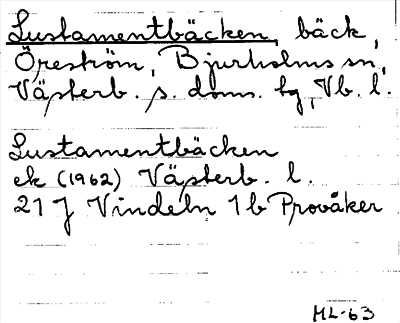 Lustamentbäcken, bäck,
Öreström, Bjurholms sn,
Västerb. s. doms. tg, Vb. l.
Lustamentbäcken
ek (1962) Västerb. l.
21 J Vindeln 1b Provåker
ML-63